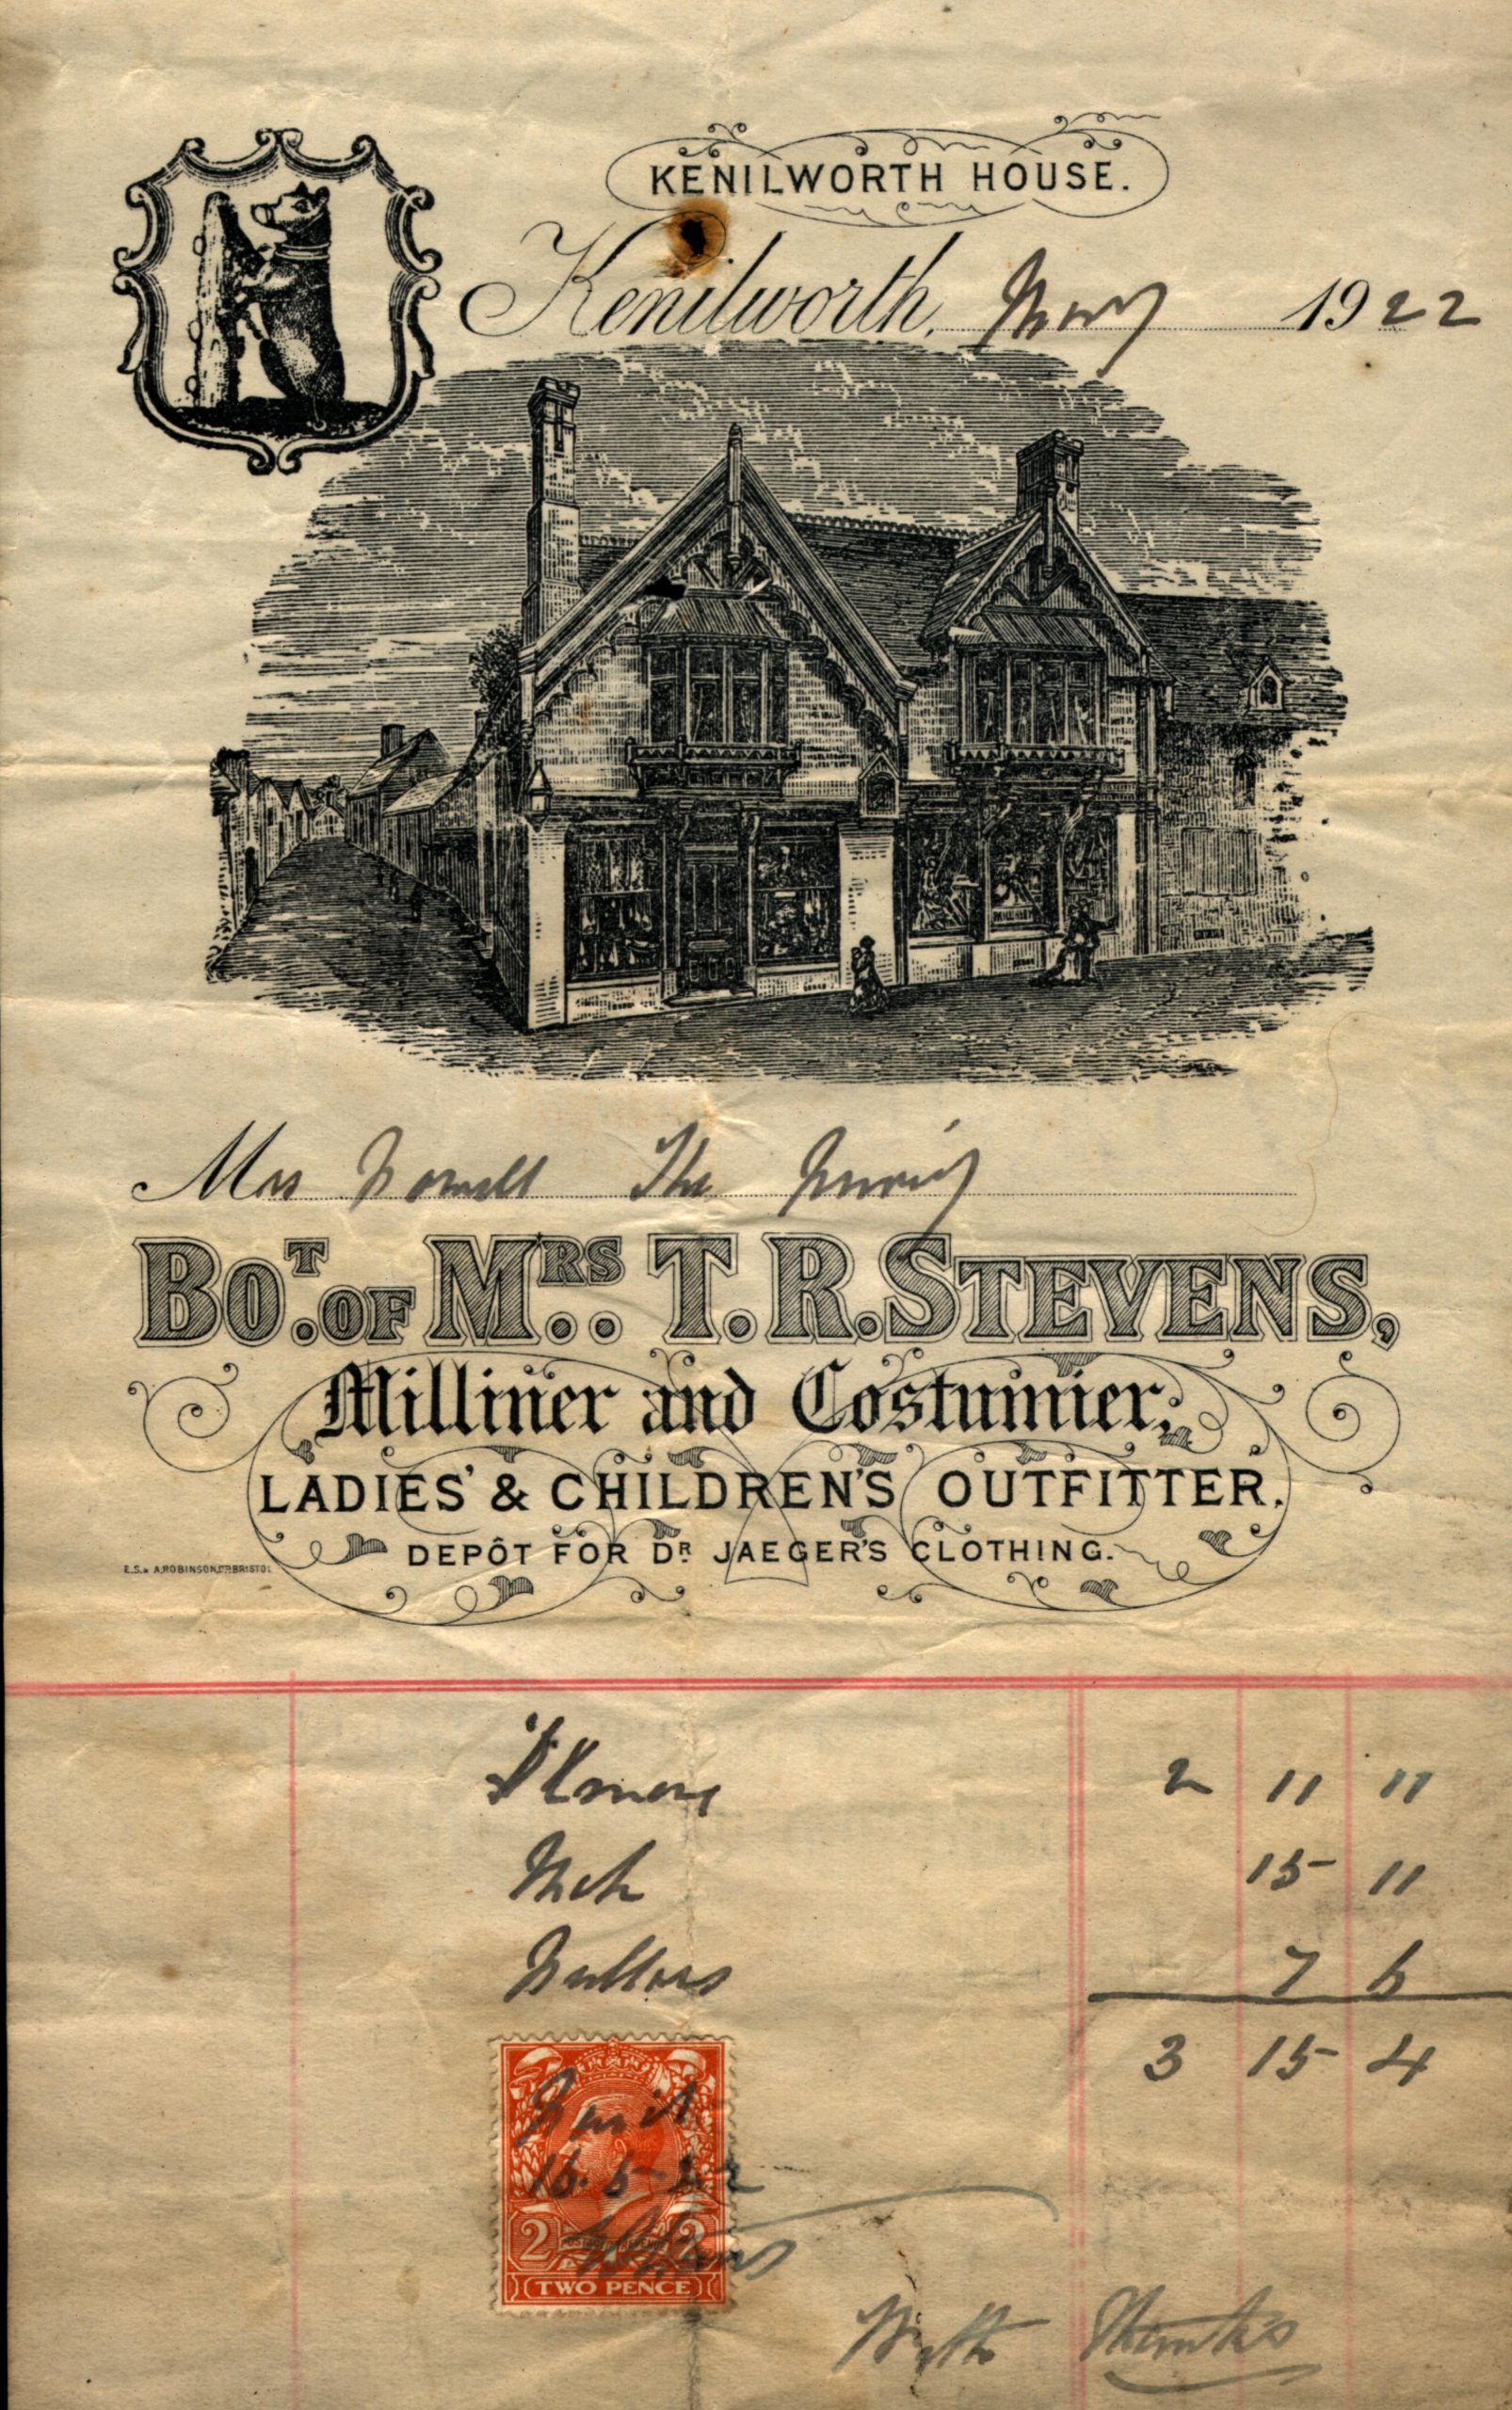 KENILWORTH HOUSE.
Kenilworth, May 1922
Mrs The Priory
BOT. OF MRS. T. R. STEVENS,
Milliner and Costumier,
LADIES' & CHILDREN'S OUTFITTER.
DEPÔT FOR DR JAEGER'S CLOTHING.
E.S. & A. ROBINSON, LTD BRISTOL
2 11 11
15 11
7 6
3 15 4
Paid
16.5.22
2 2
TWO PENCE
With Thanks